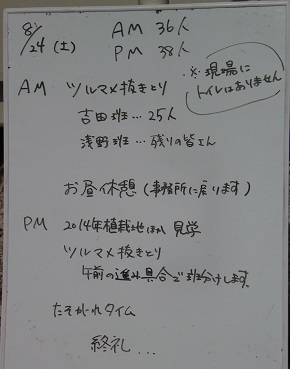 8/24(土)
AM 36人
PM 38人
※現場に
トイレはありません
AM ツルマメ抜きとり
吉田班…25人
浅野班…残りの皆さん
お昼休憩(事務所に戻ります)
PM 2014年植栽地ほか見学
ツルマメ抜きとり
午前の進み具合で班分けします。
たそがれタイム
終礼...